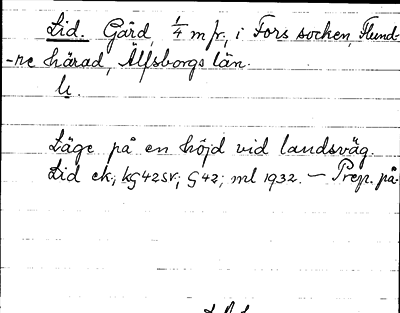 Lid. Gård, 1/4 mfr, i Fors socken, Flund-
-re härad, Älfsborgs län.
Läge på en höjd vid landsväg.
Lid ek; kG42sr; G42; ml 1932. — Prep. på.